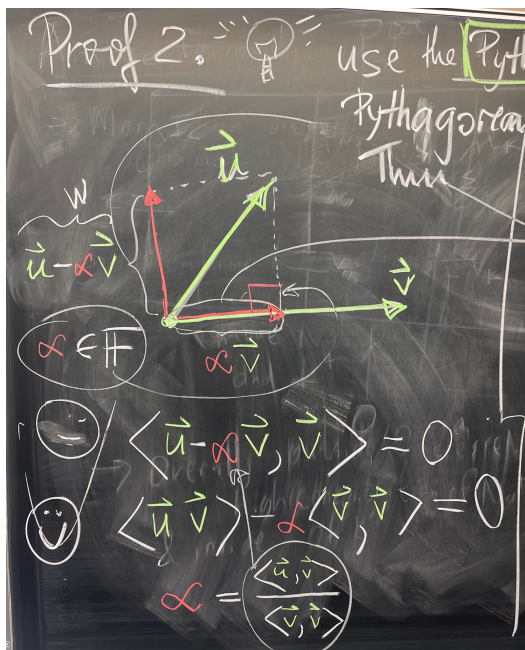 Proof 2.
use the Pyth
Pythagorean
Thm
u⃗
W
u⃗ - αv⃗
v⃗
α ∈ 𝔽
αv⃗
⟨u⃗ - αv⃗, v⃗⟩ = 0
⟨u⃗ v⃗⟩ - α⟨v⃗, v⃗⟩ = 0
α = ⟨u⃗, v⃗⟩ / ⟨v⃗, v⃗⟩